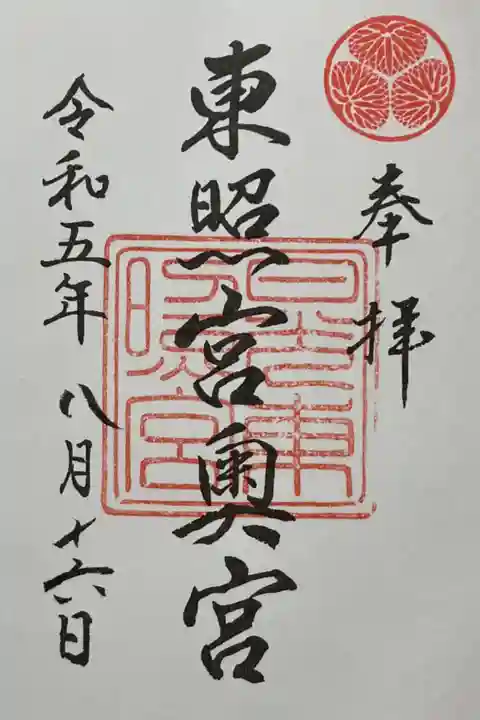 奉拝
東照宮奥宮
日光東照宮
令和五年八月十六日